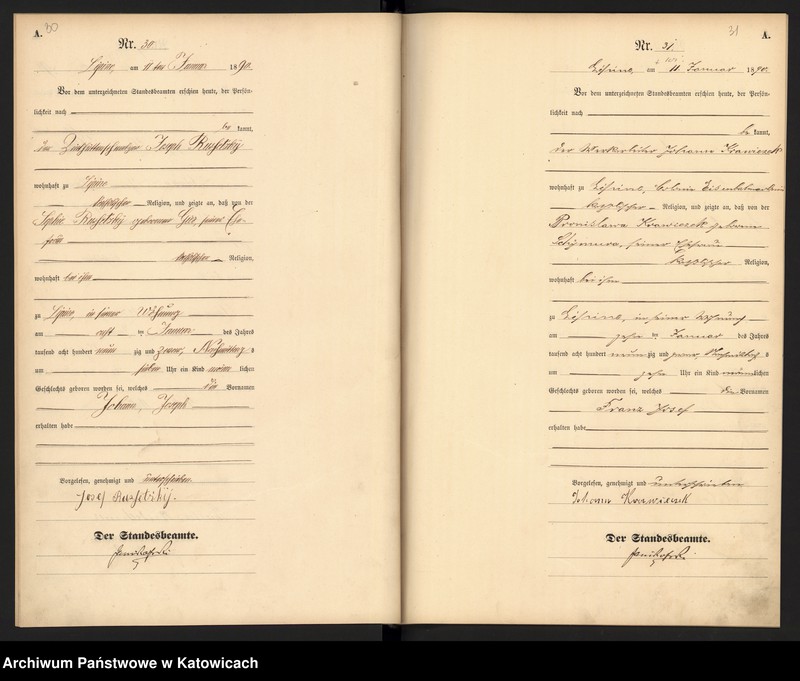 A. 30
Nr. 30.
Lipine, am 11 ten Januar 1890.
Vor dem unterzeichneten Standesbeamten erschien heute, der Persön-
lichkeit nach
be kannt,
der Joseph
wohnhaft zu Lipine
katholischer Religion, und zeigte an, daß von der
Sophie geborenen seiner Ehe-
frau
katholischer Religion,
wohnhaft bei ihm
zu Lipine, in seiner Wohnung
am acht ten Januar des Jahres
tausend acht hundert neun zig und zwar, Nachmittags
um sieben Uhr ein Kind männ lichen
Geschlechts geboren worden sei, welches die Vornamen
Johann, Joseph
erhalten habe
Vorgelesen, genehmigt und unterschrieben
Josef
Der Standesbeamte.
31 A.
Nr. 31.
Lipine, am 11 Januar 1890.
Vor dem unterzeichneten Standesbeamten erschien heute, der Persön-
lichkeit nach
be kannt,
der Johann Krawiezek
wohnhaft zu Lipine, Colonie
katholischer Religion, und zeigte an, daß von der
Bronislawa Krawiezek geborenen
seiner Ehefrau
katholischer Religion,
wohnhaft bei ihm
zu Lipine, in seiner Wohnung
am zehn ten Januar des Jahres
tausend acht hundert neun zig und zwar,
um zehn Uhr ein Kind männ lichen
Geschlechts geboren worden sei, welches die Vornamen
Franz Josef
erhalten habe
Vorgelesen, genehmigt und unterschrieben
Johann Krawiezek
Der Standesbeamte.
Archiwum Państwowe w Katowicach